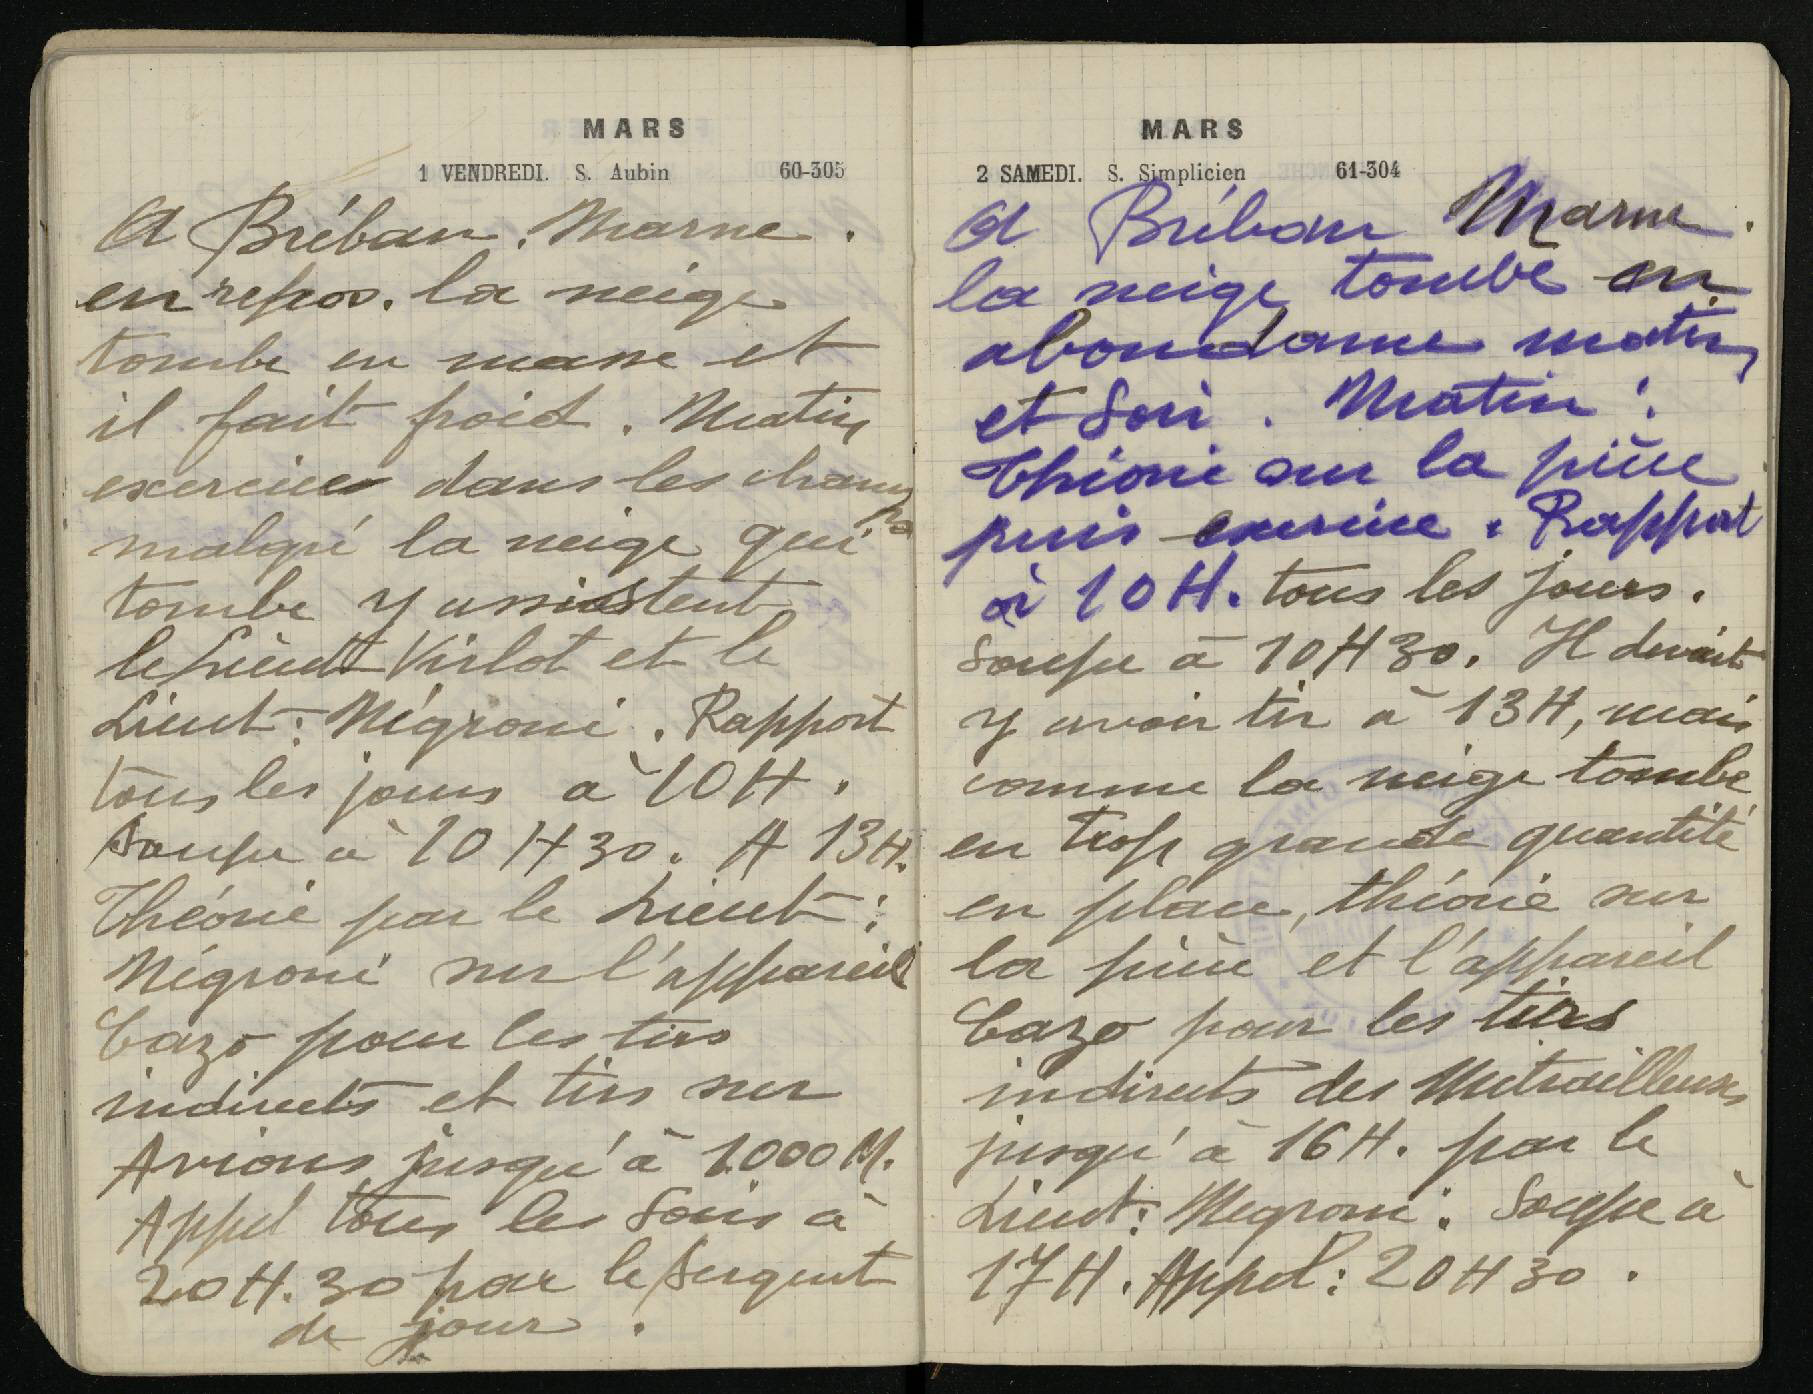 MARS
1 VENDREDI. S. Aubin 60-305
A Bréban. Marne.
en repos. la neige
tombe en masse et
il fait froid. Matin
exercices dans les champs
malgré la neige qui
tombe y assistent
le Lieut Virlot et le
Lieut: Négroni. Rapport
tous les jours à 10H.
Soupe à 10H30. A 13H.
Théorie par le Lieut:
Négroni sur l'appareil
Cazo pour les tirs
indirects et tirs sur
Avions jusqu'à 1000M.
Appel tous les Soirs à
20H.30 par le Sergent
de jour.
MARS
2 SAMEDI. S. Simplicien 61-304
A Bréban Marne.
la neige tombe en
abondance matin
et Soir. Matin:
Théorie sur la pièce
puis exercice. Rapport
à 10H. tous les jours.
Soupe à 10H30. Il devait
y avoir tir à 13H, mais
comme la neige tombe
en trop grande quantité
en place, théorie sur
la pièce et l'appareil
Cazo pour les tirs
indirects des Mitrailleuses
jusqu'à 16H. par le
Lieut: Negroni. Soupe à
17H. Appel: 20H30.